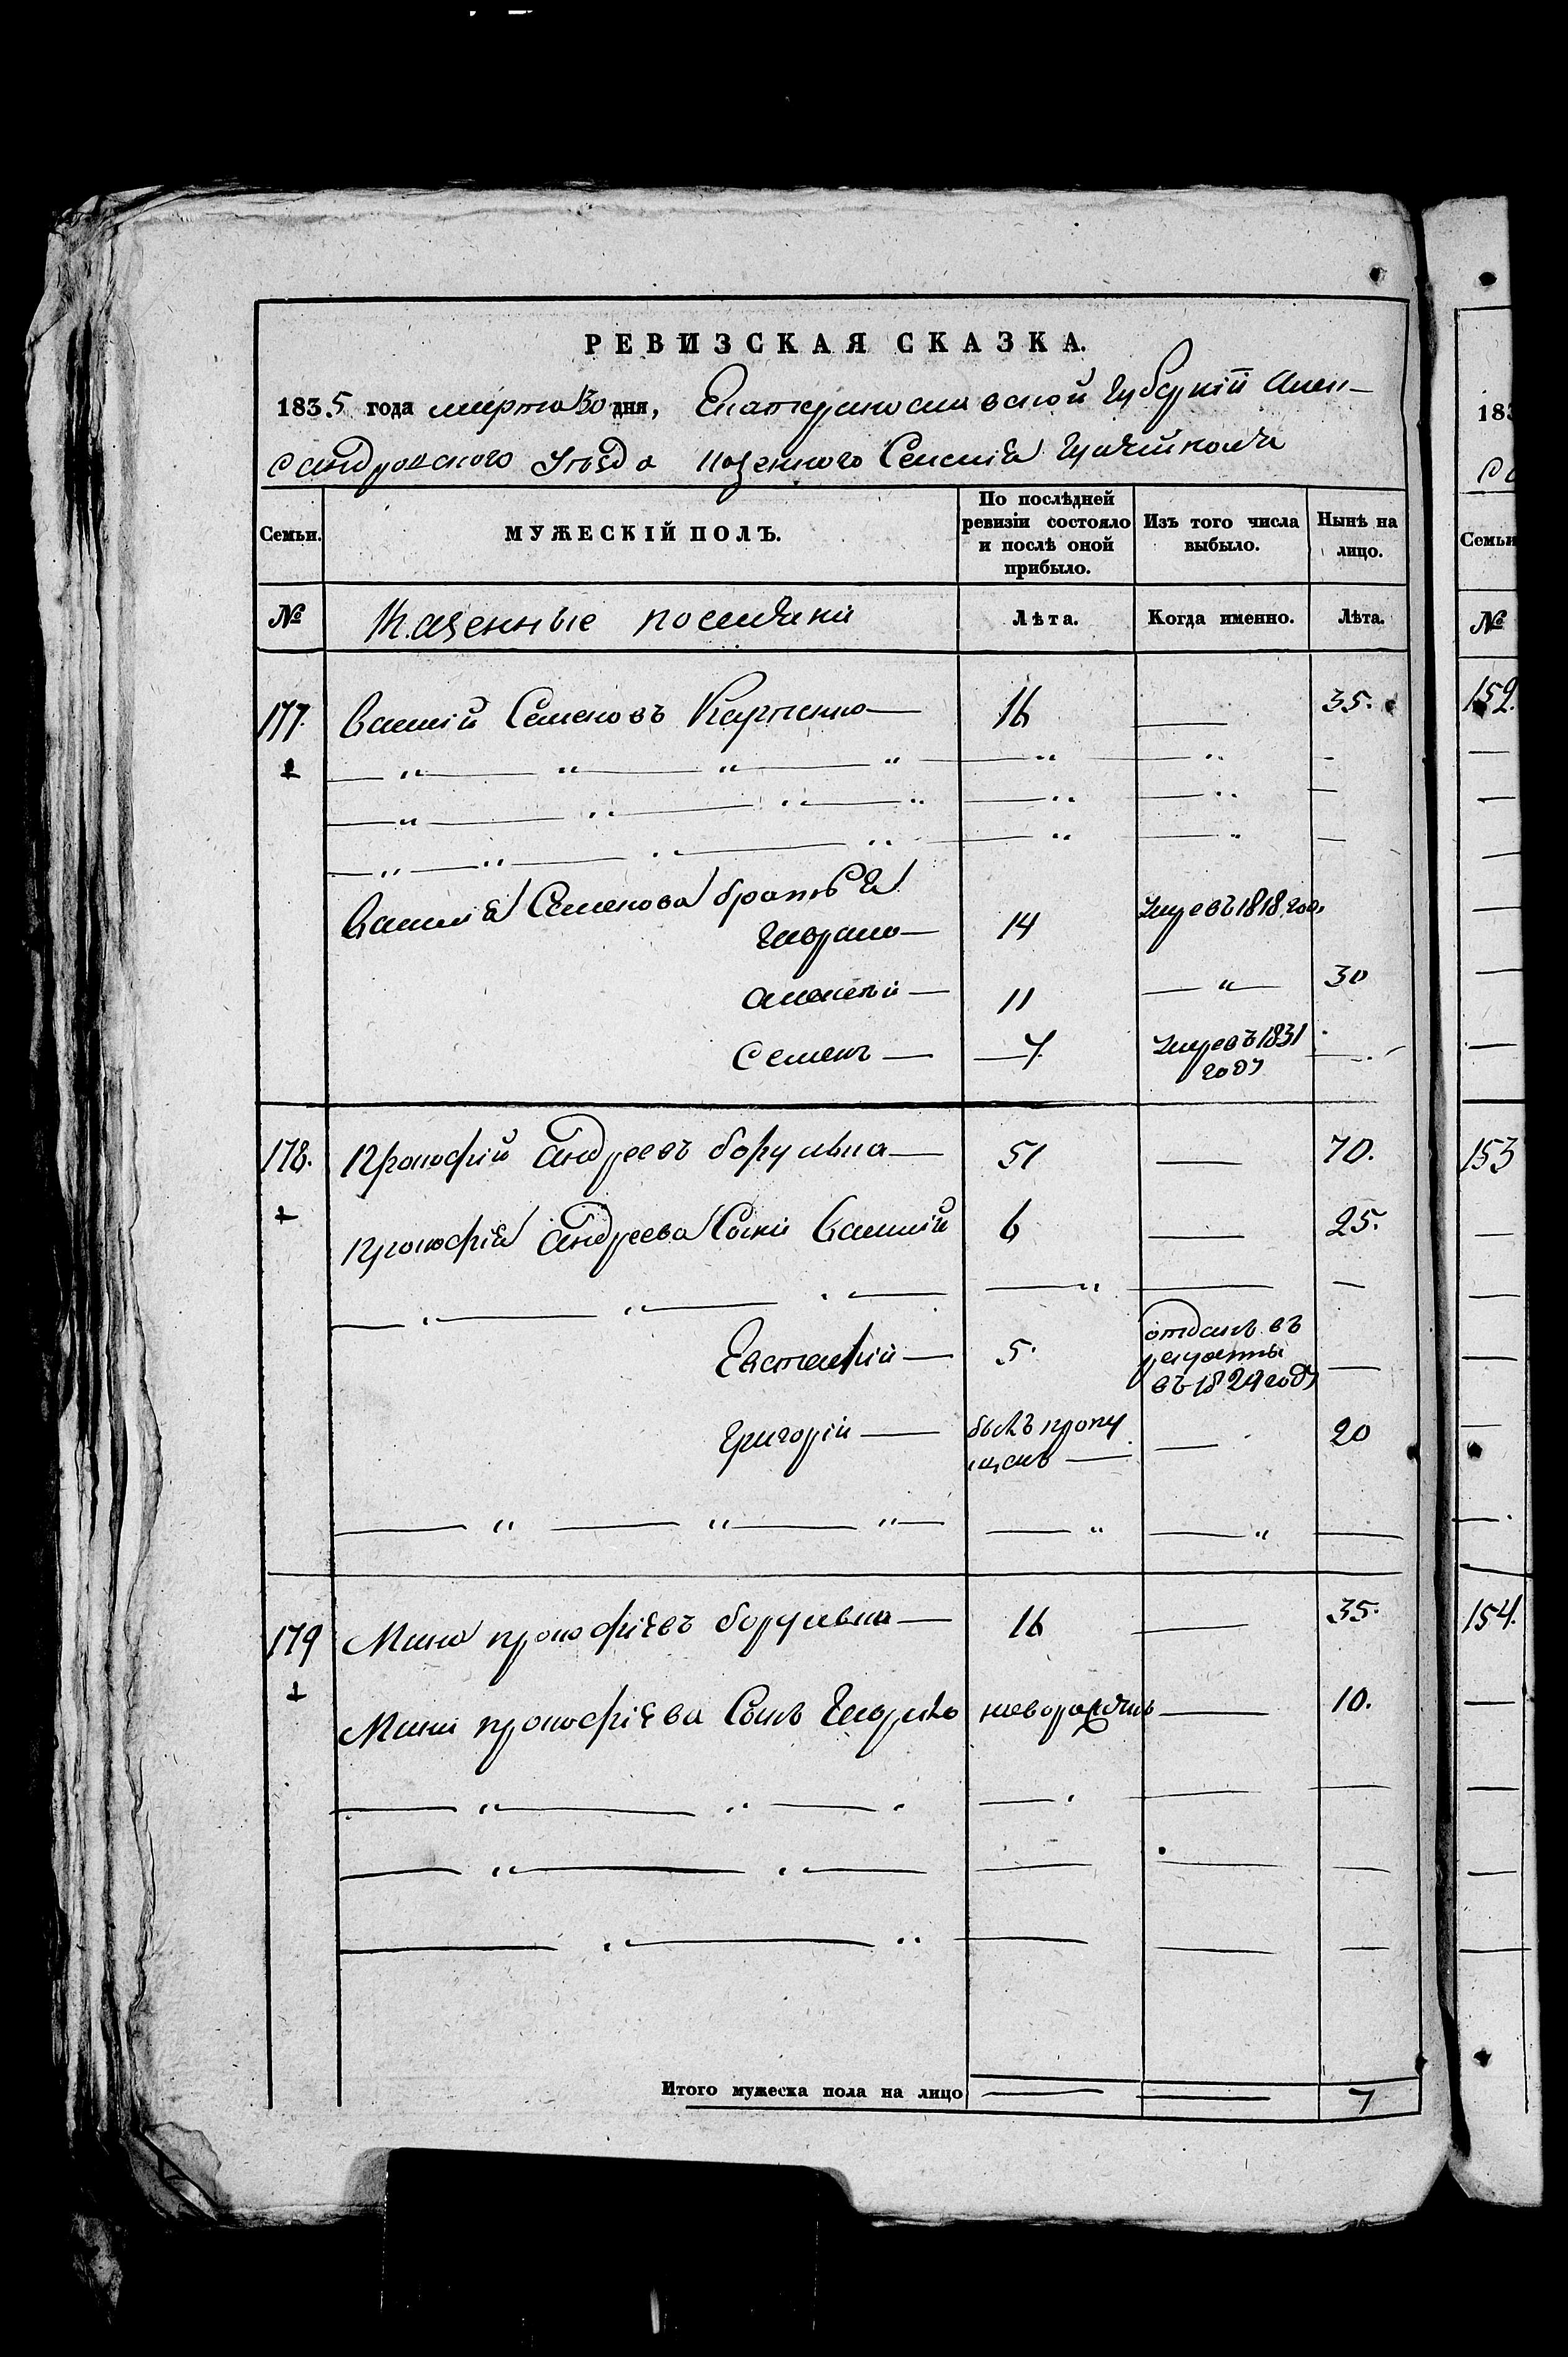 РЕВИЗСКАЯ СКАЗКА.
1835 года марта 30 дня, Екатеринославской Губернии Алек-
сандровского Уезда казенного Селения
Семьи. МУЖЕСКІЙ ПОЛЪ. По послѣдней ревизіи состояло и послѣ оной прибыло. Изъ того числа выбыло. Нынѣ на лицо.
№ Казенные поселяни Лѣта. Когда именно. Лѣта.
177. Василій Семеновъ Карпенко 16 — 35.
Василія Семенова братья
Гаврило 14 умре въ 1818 год.
Алексей 11 — 30
Семен 7. умре въ 1831 году
178. Прокофій Андреевъ 51 — 70.
Прокофія Андреева Сыни Василій 6 — 25.
Евстафій 5. отдан въ рекруты въ 1824 году
Григорій былъ пропущен — 20
179 Мина прокофіевъ 16 — 35.
Мини прокофіева Сынъ Гаврило новорожден — 10.
Итого мужеска пола на лицо — — 7
183
Семьи
№
152.
153
154.